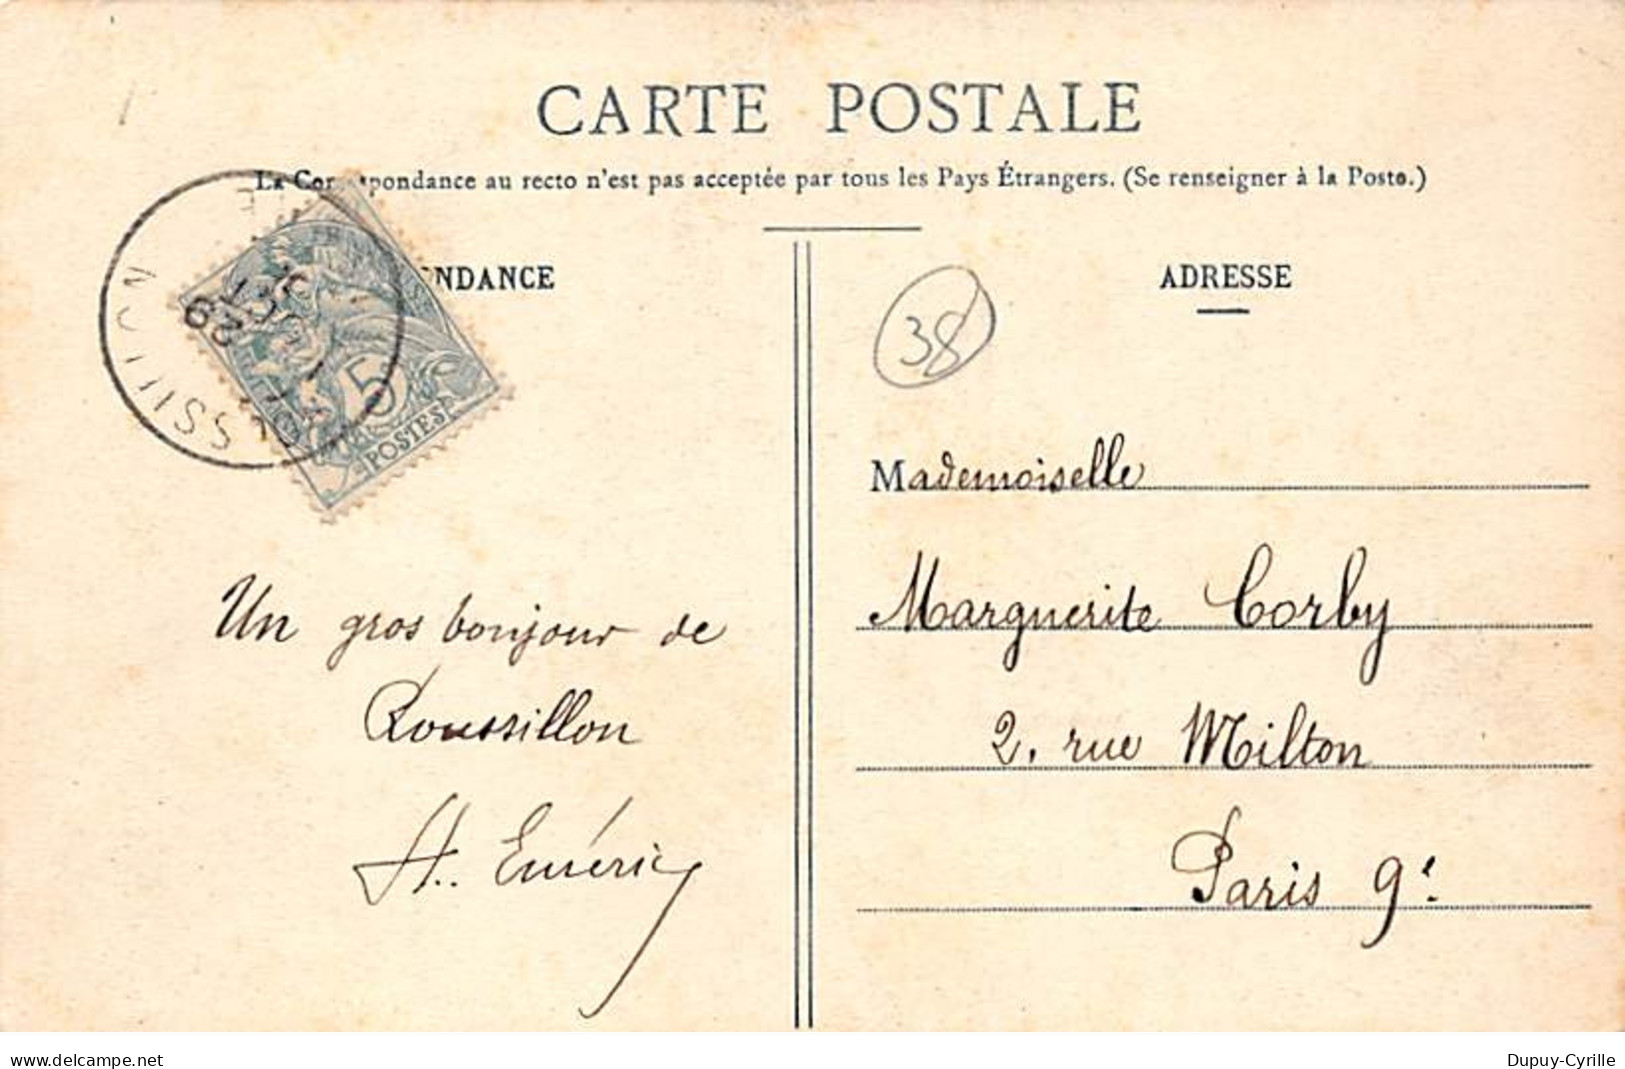 CARTE POSTALE
La Correspondance au recto n'est pas acceptée par tous les Pays Étrangers. (Se renseigner à la Poste.)
NDANCE
ADRESSE
38
SSILLON
29
5
POSTES
Mademoiselle
Marguerite Corby
2. rue Milton
Paris 9e
Un gros bonjour de
Roussillon
A. Eméric
delcampe.net
Dupuy-Cyrille